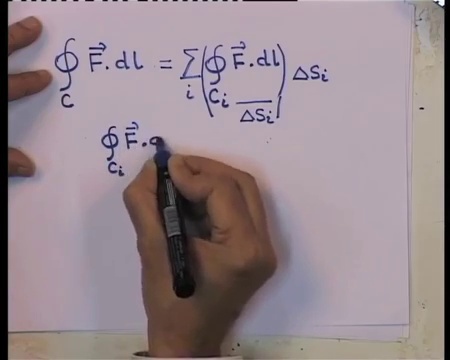 ∮_C F⃗ . dl = ∑_i (∮_{C_i} F⃗ . dl / ΔS_i) ΔS_i
∮_{C_i} F⃗ .